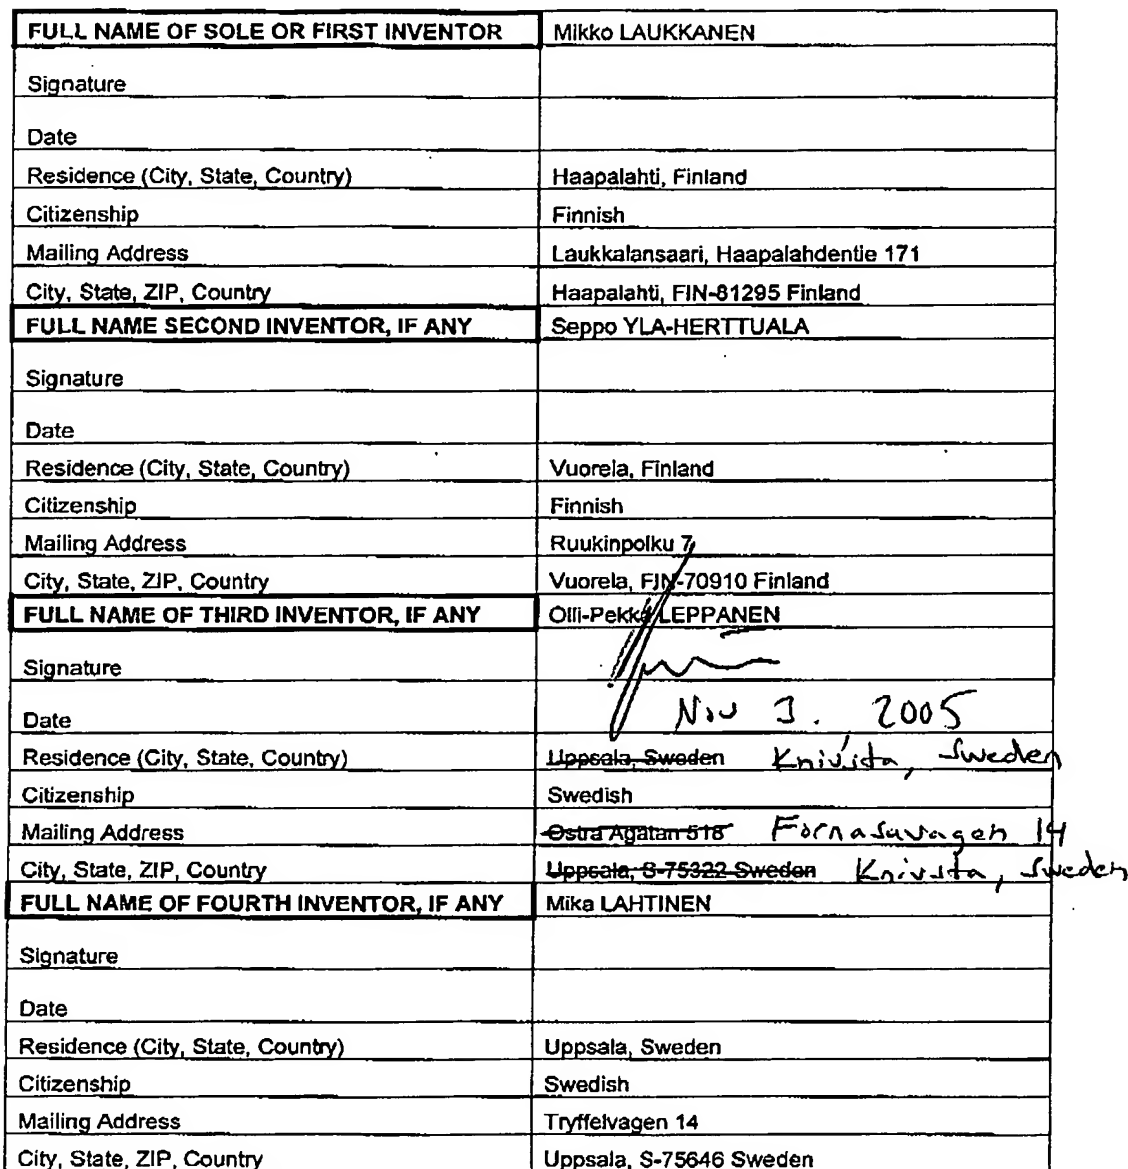 FULL NAME OF SOLE OR FIRST INVENTOR Mikko LAUKKANEN
Signature
Date
Residence (City, State, Country) Haapalahti, Finland
Citizenship Finnish
Mailing Address Laukkalansaari, Haapalahdentie 171
City, State, ZIP, Country Haapalahti, FIN-81295 Finland
FULL NAME SECOND INVENTOR, IF ANY Seppo YLA-HERTTUALA
Signature
Date
Residence (City, State, Country) Vuorela, Finland
Citizenship Finnish
Mailing Address Ruukinpolku 7
City, State, ZIP, Country Vuorela, FIN-70910 Finland
FULL NAME OF THIRD INVENTOR, IF ANY Olli-Pekka LEPPANEN
Signature
Date Nov 3. 2005
Residence (City, State, Country) Uppsala, Sweden Knivsta, Sweden
Citizenship Swedish
Mailing Address Ostra Agatan 518 Fornasavagen 14
City, State, ZIP, Country Uppsala, S-75322 Sweden Knivsta, Sweden
FULL NAME OF FOURTH INVENTOR, IF ANY Mika LAHTINEN
Signature
Date
Residence (City, State, Country) Uppsala, Sweden
Citizenship Swedish
Mailing Address Tryffelvagen 14
City, State, ZIP, Country Uppsala, S-75646 Sweden